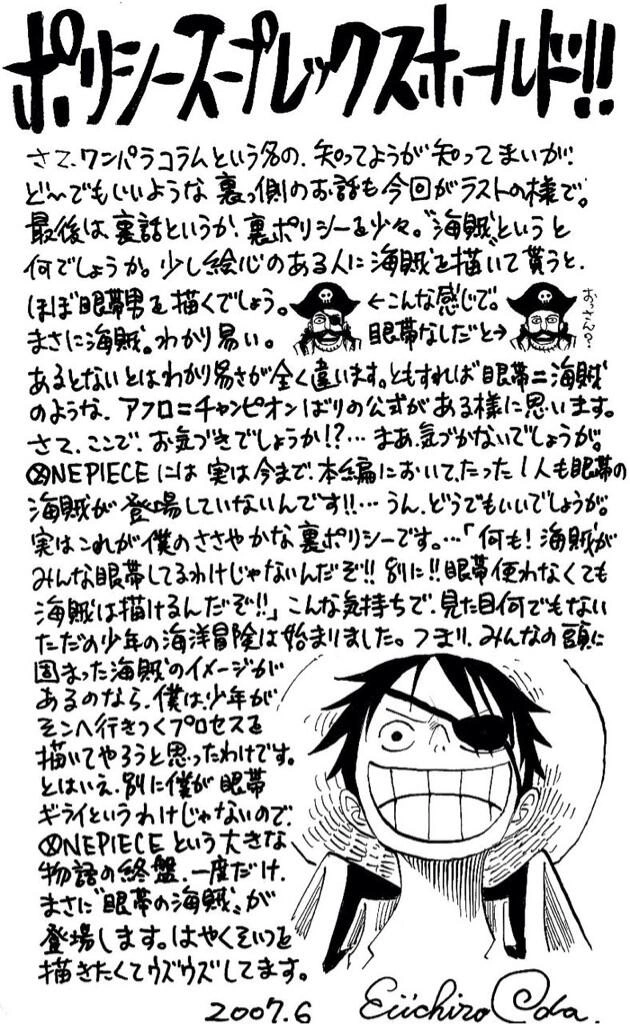 ポリシースープレックスホールド!!
さて、ワンパラコラムという名の、知ってようが知ってまいが、
ど〜でもいいような裏っ側のお話も今回がラストの様で。
最後は裏話というか、裏ポリシーを少々。"海賊"というと
何でしょうか。少し絵心のある人に海賊を描いて貰うと、
ほぼ眼帯男を描くでしょう。←こんな感じで。
まさに海賊。わかり易い。眼帯なしだと→
おっさん?
あるとないとはわかり易さが全く違います。ともすれば眼帯=海賊
のような、アフロ=チャンピオンばりの公式がある様に思います。
さて、ここで、お気づきでしょうか!?…まあ、気づかないでしょうが。
ONEPIECEには実は今まで、本編において、たった1人も眼帯の
海賊が登場していないんです!!…うん、どうでもいいでしょうが。
実はこれが僕のささやかな裏ポリシーです。…「何も!海賊が
みんな眼帯してるわけじゃないんだぞ!!別に!!眼帯使わなくても
海賊は描けるんだぞ!!」こんな気持ちで、見た目何でもない
ただの少年の海洋冒険は始まりました。つまり、みんなの頭に
固まった海賊のイメージが
あるのなら、僕は、少年が
そこへ行きつくプロセスを
描いてやろうと思ったわけです。
とはいえ、別に僕が眼帯
ギライというわけじゃないので、
ONEPIECEという大きな
物語の終盤、一度だけ、
まさに"眼帯の海賊"が
登場します。はやくそいつを
描きたくてウズウズしてます。
2007.6 Eiichiro Oda.